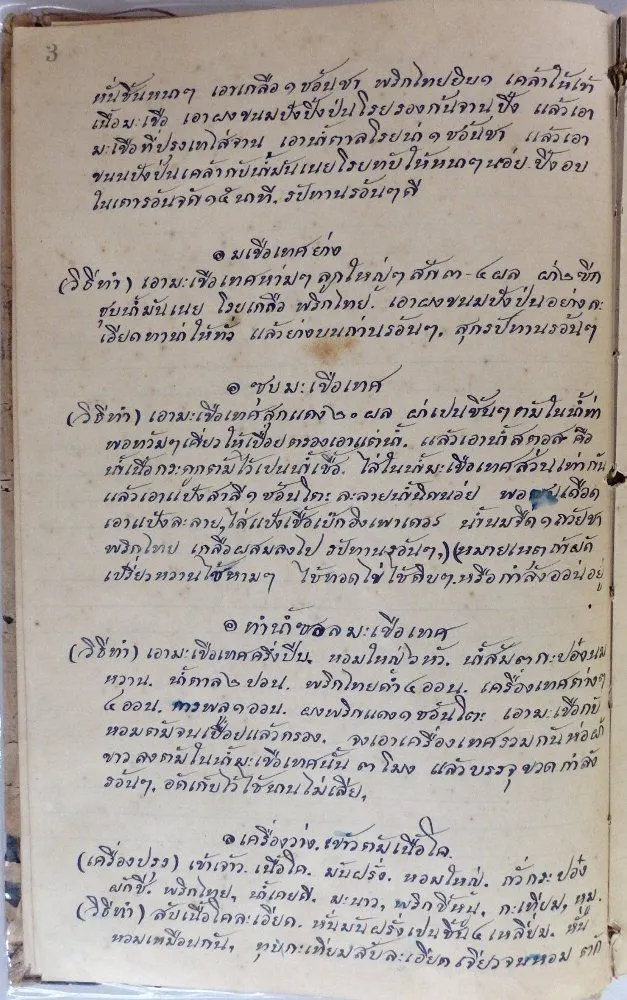 3
หั่นชิ้นหนาๆ เอาเกลือ ๑ ช้อนชา พริกไทยยิบ ๑ เคล้าให้เข้า
เนื้อมะเขือ เอาผงขนมปังปิ้งป่นโรยรองก้นจานปิ้ง แล้วเอา
มะเขือที่ปรุงเทใส่จาน เอาน้ำตาลโรยน่า ๑ ช้อนชา แล้วเอา
ขนมปังป่นเคล้ากับน้ำมันเนยโรยทับให้หนาๆ น่อย ปิ้งอบ
ในเตารอันจัด ๑๕ นาที. รปัทานรอันๆ ดี
๑ มเขือเทศย่าง
(วิธีทำ) เอามะเขือเทศห่ามๆ ลูกใหญ่ๆ สัก ๓-๔ ผล ผ่า ๒ ซีก
ชุบน้ำมันเนย โรยเกลือ พริกไทย. เอาผงขนมปังป่นอย่างละ
เอียดทาน่าให้ทั่ว แล้วย่างบนถ่านรอันๆ. สุกรปัทานรอันๆ
๑ ซุบมะเขือเทศ
(วิธีทำ) เอามะเขือเทศสุกแดง ๒๐ ผล ผ่าเปนชิ้นๆ ตัมในน้ำท่า
พอท่วมๆ เคี่ยวให้เปื่อยตรองเอาแต่น้ำ. แล้วเอาน้ำสตอส คือ
น้ำเนื้อกระดูกตัมไว้เปนน้ำเชื้อ. ใส่ในน้ำมะเขือเทศส่วนเท่ากัน
แล้วเอาแป้งสาลี ๑ ช้อนโตะ ละลายน้ำนิดน่อย พอ เดือด
เอาแป้งละลาย, ใส่แป้งเชื้อเบ๊กอิงเพาเดอร น้ำนมจืด ๑ ถ้วยชา
พริกไทย เกลือผสมลงไป รปัทานรอันๆ,) (หมายเหตุ ถ้าผัด
เปรี้ยวหวานใช้ห่ามๆ ใช้ทอดไข่ใช้ดิบๆ. หรือกำลังออ่นอยู่
๑ ทำน้ำซอลมะเขือเทศ
(วิธีทำ) เอามะเขือเทศครึ่งปีบ. หอมใหญ่ ๖ หัว. น้ำส้ม ๓ กะป๋องนม
หวาน. น้ำตาล ๒ ปอน. พริกไทยดำ ๔ ออน. เครื่องเทศต่างๆ
๔ ออน. การพลู ๑ ออน. ผงพริกแดง ๑ ช้อนโตะ เอามะเขือกับ
หอมตัมจนเปื่อยแล้วกรอง. จงเอาเครื่องเทศรวมกันห่อผ้า
ขาวลงตัมในน้ำมะเขือเทศนั้น ๓ โมง แล้วบรรจุขวดกำลัง
รอันๆ, อัดเกับไว้ใช้นานไม่เสีย,
๑ เครื่องว่าง. เข้าตัมเนื้อโค.
(เครื่องปรุง) เข้าเจ้า. เนื้อโค. มันฝรั่ง. หอมใหญ่. ถั่วกระป๋อง
ผักชี. พริกไทย, น้ำเคยดี. มะนาว, พริกขี้หนู, กะเทียม, หมู.
(วิธีทำ) สับเนื้อโคละเอียด. หั่นมันฝรั่งเปนชิ้น ๔ เหลี่ยม. หั่น
หอมเหมือนกัน, ทุบกะเทียมสับละเอียด เจียวจนหอม